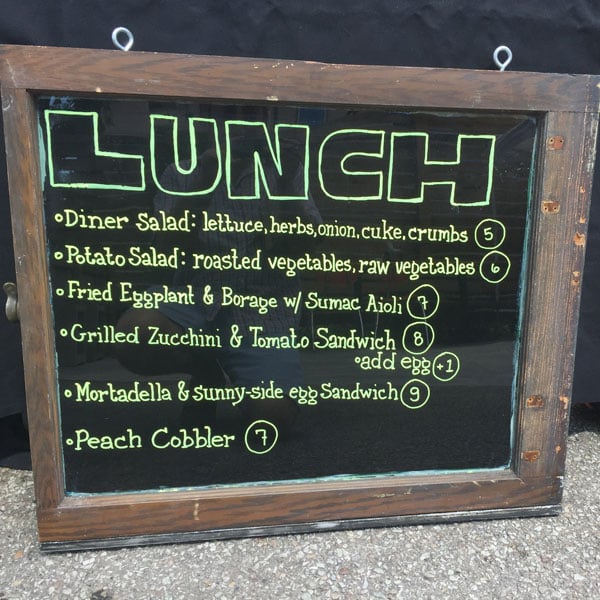 LUNCH
•Diner Salad: lettuce, herbs, onion, cuke, crumbs 5
•Potato Salad: roasted vegetables, raw vegetables 6
•Fried Eggplant & Borage w/ Sumac Aioli 7
•Grilled Zucchini & Tomato Sandwich 8
•add egg +1
•Mortadella & sunny-side egg Sandwich 9
•Peach Cobbler 7